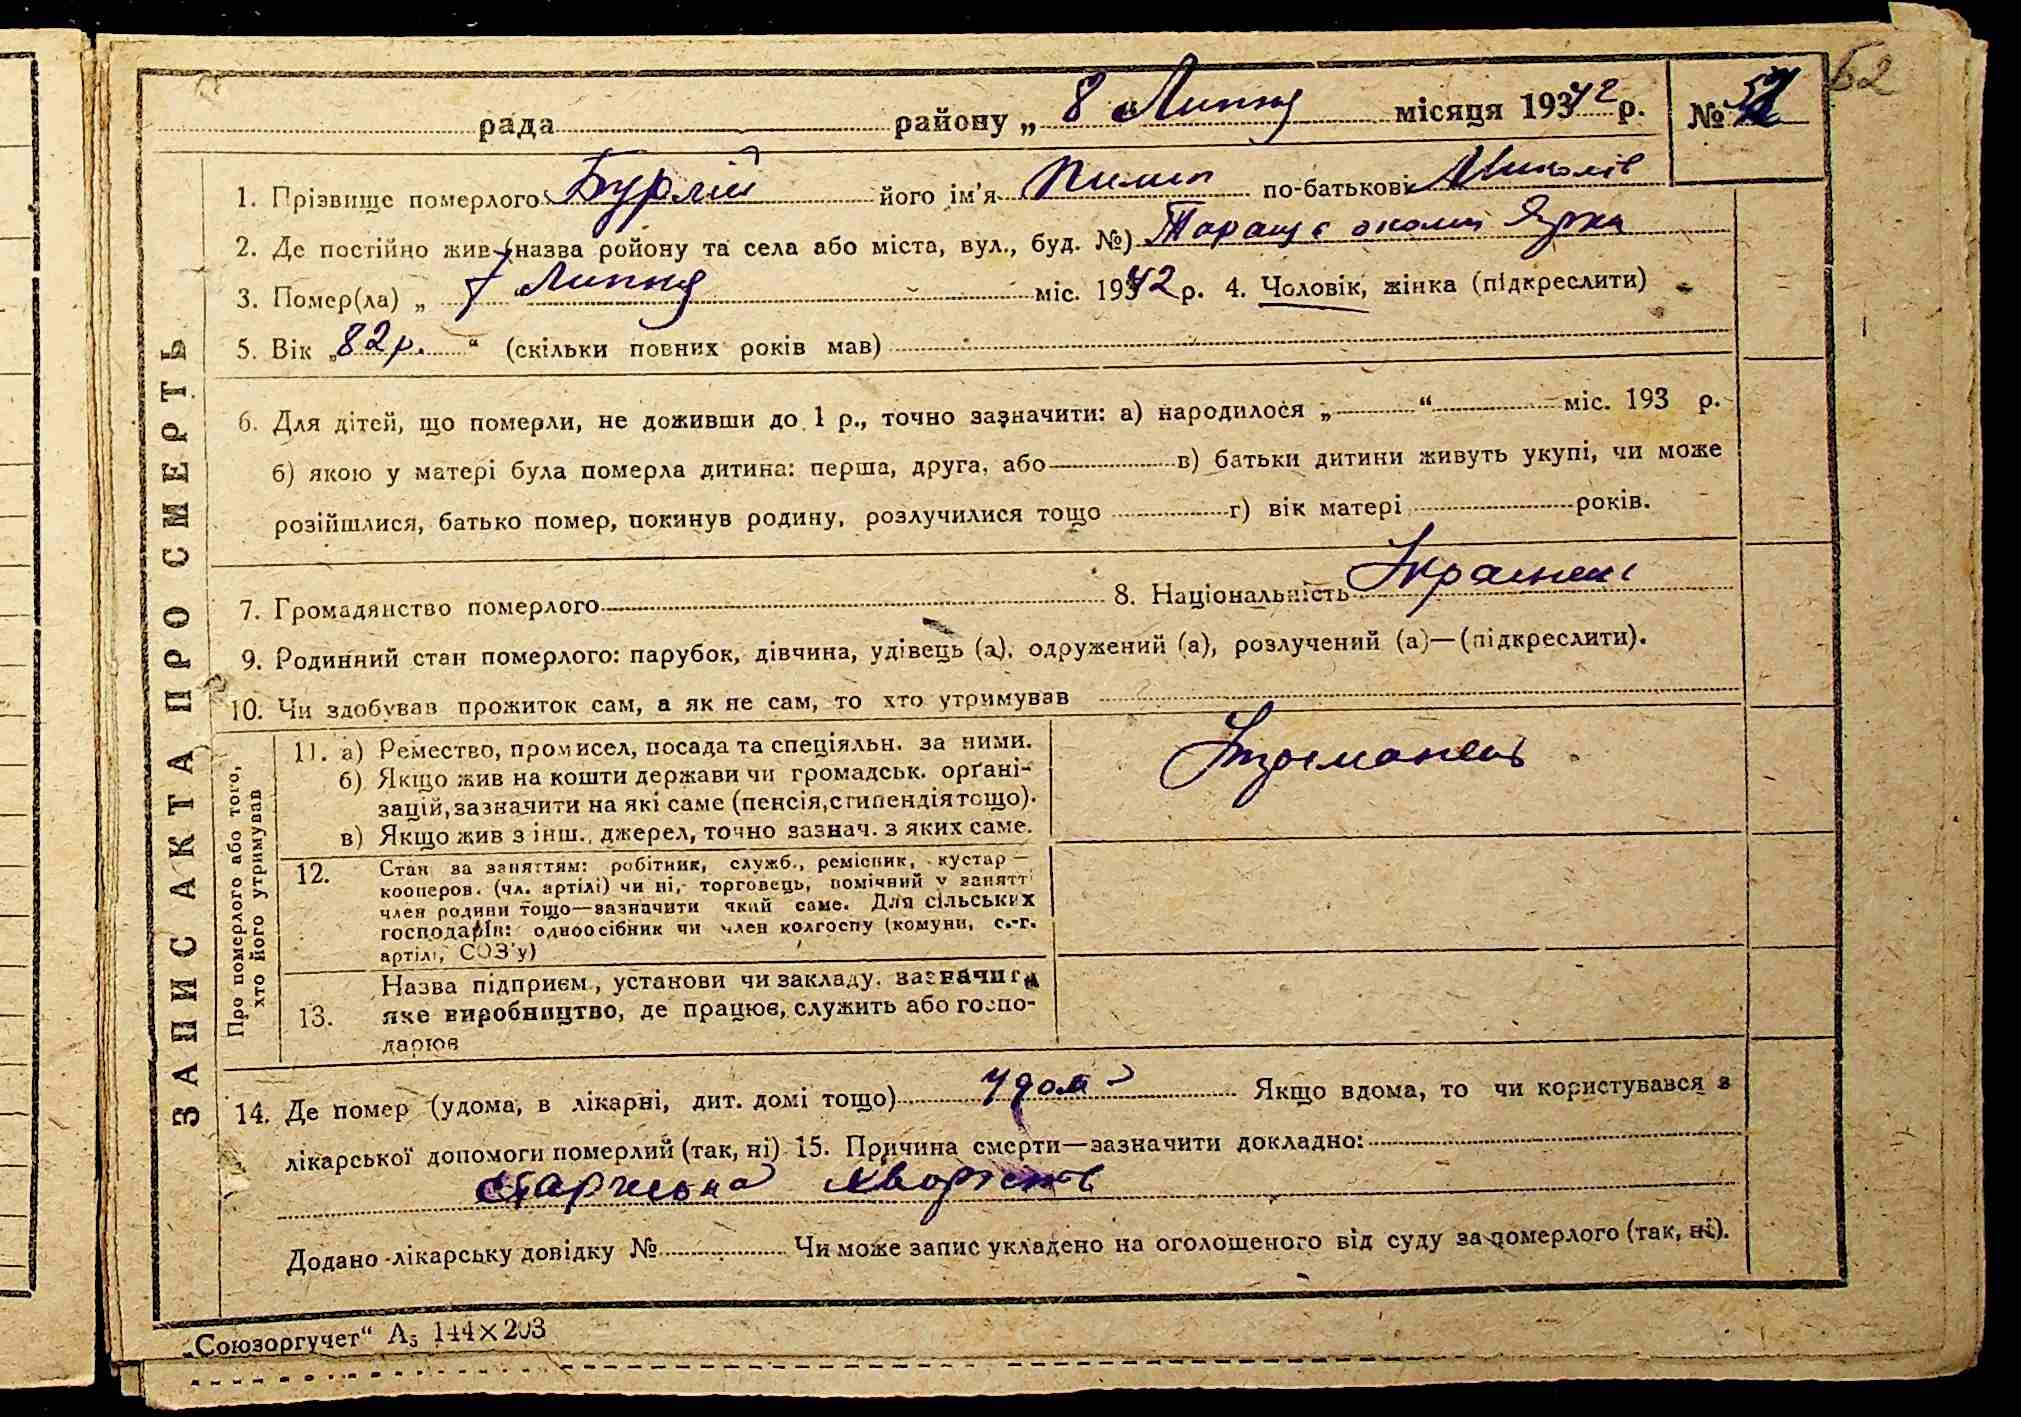 62
рада районну „ 8 “ Липня місяця 1942 р. №
1. Прізвище померлого Бурлій його ім’я Пилип по-батькові Миколів
2. Де постійно жив (назва ройону та села або міста, вул., буд. №) Таращ
3. Помер(ла) „ 7 “ Липня міс. 1942 р. 4. Чоловік, жінка (підкреслити)
5. Вік „ 82 р. “ (скільки повних років мав)
6. Для дітей, що померли, не доживши до 1 р., точно зазначити: а) народилося „ “ міс. 193 р.
б) якою у матері була померла дитина: перша, друга, або в) батьки дитини живуть укупі, чи може
розійшлися, батько помер, покинув родину, розлучилися тощо г) вік матері років.
7. Громадянство померлого 8. Національність Українец
9. Родинний стан померлого: парубок, дівчина, удівець (а), одружений (а), розлучений (а)—(підкреслити).
10. Чи здобував прожиток сам, а як не сам, то хто утримував
Про померлого або того,
хто його утримував
11. а) Ремество, промисел, посада та спеціяльн. за ними.
б) Якщо жив на кошти держави чи громадськ. орґані-
зацій, зазначити на які саме (пенсія, стипендія тощо).
в) Якщо жив з інш., джерел, точно зазнач. з яких саме.
Утриманець
12. Стан за заняттям: робітник, служб., ремісник, кустар —
кооперов. (чл. артілі) чи ні, торговець, помічний у занятт
член родини тощо—зазначити який саме. Для сільських
господарів: одноосібник чи член колгоспу (комуни, с.-г.
артілі, СОЗ’у)
13. Назва підприєм., установи чи закладу, зазначити
яке виробництво, де працює, служить або госпо-
дарює
14. Де помер (удома, в лікарні, дит. домі тощо) удома Якщо вдома, то чи користувався з
лікарської допомоги померлий (так, ні) 15. Причина смерти—зазначити докладно:
старческа хворість
Додано лікарську довідку № Чи може запис укладено на оголошеного від суду за померлого (так, ні).
ЗАПИС АКТА ПРО СМЕРТЬ
„Союзоргучет“ А5 144×203